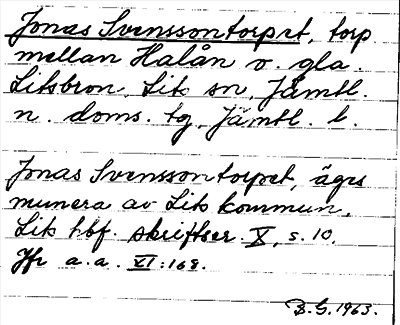 Jonas Svenssontorpet, torp
mellan Halån o. gla.
Litsbron, Lits sn, Jämtl.
n. doms. tg, Jämtl. l.
Jonas Svenssontorpet, äges
numera av Lits kommun.
Lits hbf. skriftser. X, s. 10.
Jfr a.a. XI:168.
B.G. 1963.